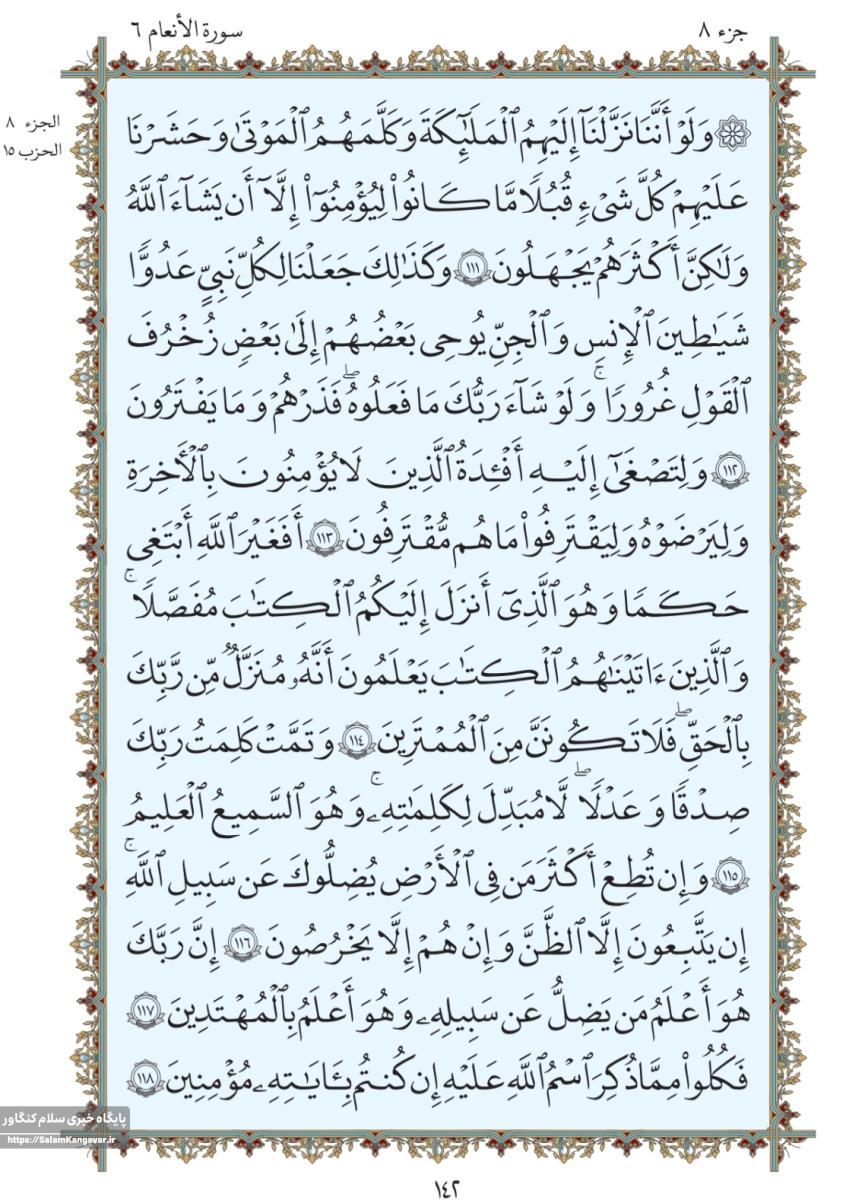 جزء ۸
سورة الأنعام ٦
الجزء ۸
الحزب ۱۵
۞ وَلَوْ أَنَّنَا نَزَّلْنَآ إِلَيْهِمُ ٱلْمَلَٰٓئِكَةَ وَكَلَّمَهُمُ ٱلْمَوْتَىٰ وَحَشَرْنَا
عَلَيْهِمْ كُلَّ شَىْءٍ قُبُلًا مَّا كَانُوا۟ لِيُؤْمِنُوٓا۟ إِلَّآ أَن يَشَآءَ ٱللَّهُ
وَلَٰكِنَّ أَكْثَرَهُمْ يَجْهَلُونَ ١١١ وَكَذَٰلِكَ جَعَلْنَا لِكُلِّ نَبِىٍّ عَدُوًّا
شَيَٰطِينَ ٱلْإِنسِ وَٱلْجِنِّ يُوحِى بَعْضُهُمْ إِلَىٰ بَعْضٍ زُخْرُفَ
ٱلْقَوْلِ غُرُورًا ۚ وَلَوْ شَآءَ رَبُّكَ مَا فَعَلُوهُ ۖ فَذَرْهُمْ وَمَا يَفْتَرُونَ
١١٢ وَلِتَصْغَىٰٓ إِلَيْهِ أَفْـِٔدَةُ ٱلَّذِينَ لَا يُؤْمِنُونَ بِٱلْـَٔاخِرَةِ
وَلِيَرْضَوْهُ وَلِيَقْتَرِفُوا۟ مَا هُم مُّقْتَرِفُونَ ١١٣ أَفَغَيْرَ ٱللَّهِ أَبْتَغِى
حَكَمًا وَهُوَ ٱلَّذِىٓ أَنزَلَ إِلَيْكُمُ ٱلْكِتَٰبَ مُفَصَّلًا ۚ
وَٱلَّذِينَ ءَاتَيْنَٰهُمُ ٱلْكِتَٰبَ يَعْلَمُونَ أَنَّهُۥ مُنَزَّلٌ مِّن رَّبِّكَ
بِٱلْحَقِّ ۖ فَلَا تَكُونَنَّ مِنَ ٱلْمُمْتَرِينَ ١١٤ وَتَمَّتْ كَلِمَتُ رَبِّكَ
صِدْقًا وَعَدْلًا ۖ لَّا مُبَدِّلَ لِكَلِمَٰتِهِۦ ۚ وَهُوَ ٱلسَّمِيعُ ٱلْعَلِيمُ
١١٥ وَإِن تُطِعْ أَكْثَرَ مَن فِى ٱلْأَرْضِ يُضِلُّوكَ عَن سَبِيلِ ٱللَّهِ ۚ
إِن يَتَّبِعُونَ إِلَّا ٱلظَّنَّ وَإِنْ هُمْ إِلَّا يَخْرُصُونَ ١١٦ إِنَّ رَبَّكَ
هُوَ أَعْلَمُ مَن يَضِلُّ عَن سَبِيلِهِۦ وَهُوَ أَعْلَمُ بِٱلْمُهْتَدِينَ ١١٧
فَكُلُوا۟ مِمَّا ذُكِرَ ٱسْمُ ٱللَّهِ عَلَيْهِ إِن كُنتُم بِـَٔايَٰتِهِۦ مُؤْمِنِينَ ١١٨
پایگاه خبری سلام کنگاور
https://SalamKangavar.ir
۱۴۲